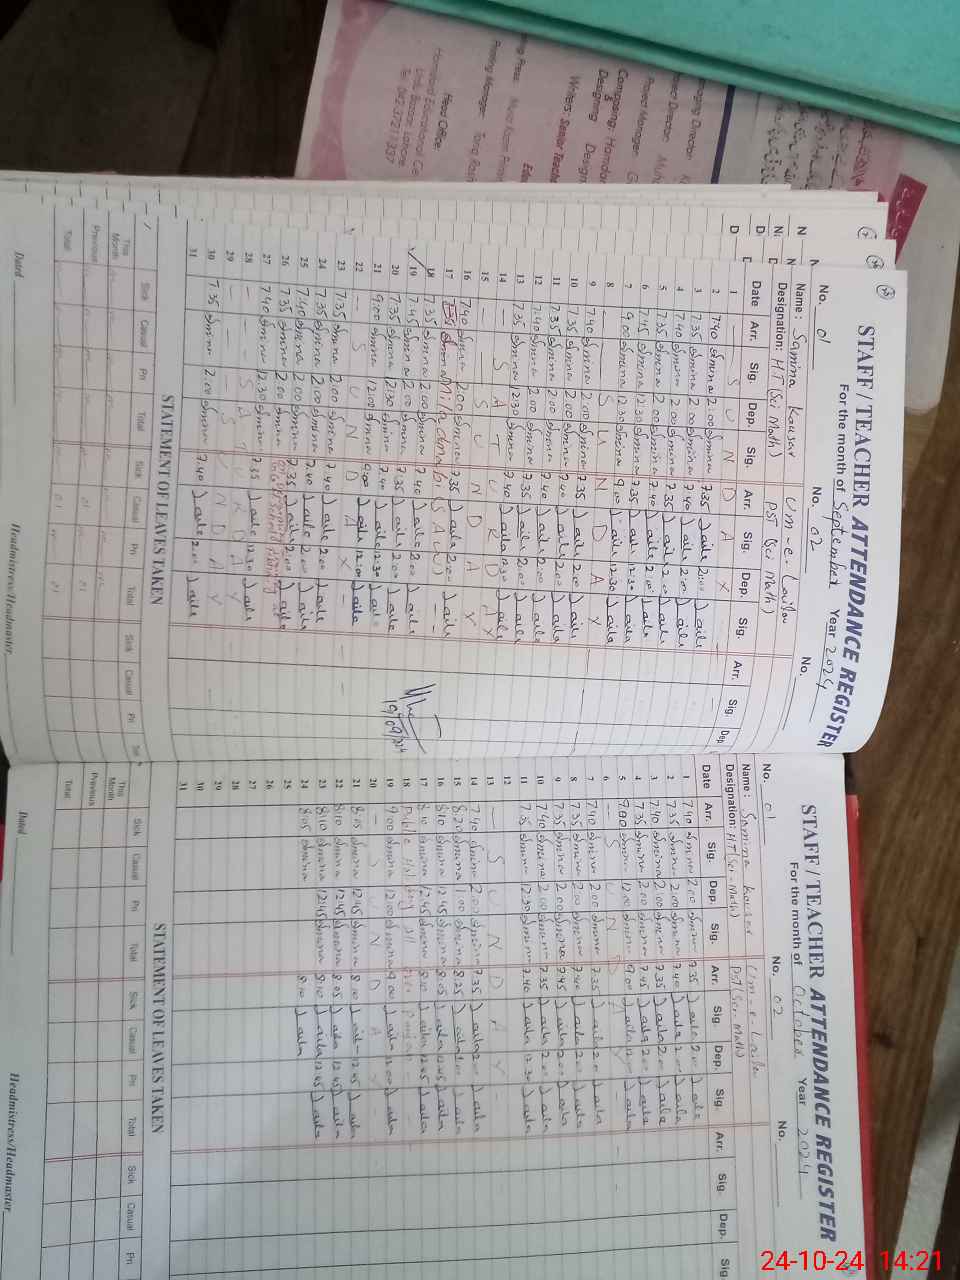 STAFF / TEACHER ATTENDANCE REGISTER
For the month of September Year 2024
No. 01 No. 02 No.
Name: Samina Kausar Um-e-Laila
Designation: HT (Sci Math) PST (Sci Math)
Date Arr. Sig. Dep. Sig. Arr. Sig. Dep. Sig. Arr. Sig. Dep
1 — S U N D A Y
2 7:40 Smina 2:00 Smina 7:35 Laila 2:00 Laila
3 7:35 Smina 2:00 Smina 7:40 Laila 2:00 Laila
4 7:40 Smina 2:00 Smina 7:35 Laila 2:00 Laila
5 7:35 Smina 2:00 Smina 7:40 Laila 2:00 Laila
6 7:45 Smina 12:30 Smina 7:35 Laila 12:30 Laila
7 9:00 Smina 12:30 Smina 9:00 Laila 12:30 Laila
8 — S U N D A Y
9 7:40 Smina 2:00 Smina 7:35 Laila 2:00 Laila
10 7:35 Smina 2:00 Smina 7:40 Laila 2:00 Laila
11 7:35 Smina 2:00 Smina 7:40 Laila 2:00 Laila
12 7:40 Smina 2:00 Smina 7:40 Laila 2:00 Laila
13 7:35 Smina 12:30 Smina 7:40 Laila 12:30 Laila
14 — S A T U R D A Y
15 — S U N D A Y
16 7:40 Smina 2:00 Smina 7:35 Laila 2:00 Laila
17 Milad un Nabi (SAW)
18 7:35 Smina 2:00 Smina 7:40 Laila 2:00 Laila
19 7:45 Smina 2:00 Smina 7:40 Laila 2:00 Laila
20 7:35 Smina 12:30 Smina 7:40 Laila 12:30 Laila
21 9:00 Smina 12:00 Smina 9:00 Laila 12:00 Laila
22 — S U N D A Y
23 7:35 Smina 2:00 Smina 7:40 Laila 2:00 Laila
24 7:35 Smina 2:00 Smina 7:40 Laila 2:00 Laila
25 7:40 Smina 2:00 Smina 7:35 Laila 2:00 Laila
26 7:35 Smina 2:00 Smina
27 7:40 Smina 12:30 Smina 7:35 Laila 12:30 Laila
28 — S A T U R D A Y
29 — S U N D A Y
30 7:35 Smina 2:00 Smina 7:40 Laila 2:00 Laila
31
19/09/24
STATEMENT OF LEAVES TAKEN
Sick Casual Pri Total Sick Casual Pri Total Sick Casual Pri
This Month
Previous
Total
Dated Headmistress/Headmaster
STAFF / TEACHER ATTENDANCE REGISTER
For the month of October Year 2024
No. 01 No. 02 No.
Name: Samina Kausar Um-e-Laila
Designation: HT (Sci-Math) PST (Sci-Math)
Date Arr. Sig. Dep. Sig. Arr. Sig. Dep. Sig. Arr. Sig. Dep. Sig.
1 7:40 Smina 2:00 Smina 7:35 Laila 2:00 Laila
2 7:35 Smina 2:00 Smina 7:40 Laila 2:00 Laila
3 7:40 Smina 2:00 Smina 7:35 Laila 2:00 Laila
4 7:35 Smina 2:00 Smina 7:45 Laila 2:00 Laila
5 9:00 Smina 12:00 Smina 9:00 Laila 12:00 Laila
6 — S U N D A Y
7 7:40 Smina 2:00 Smina 7:35 Laila 2:00 Laila
8 7:35 Smina 2:00 Smina 7:40 Laila 2:00 Laila
9 7:35 Smina 2:00 Smina 7:45 Laila 2:00 Laila
10 7:40 Smina 2:00 Smina 7:35 Laila 2:00 Laila
11 7:35 Smina 12:30 Smina 7:40 Laila 12:30 Laila
12
13 — S U N D A Y
14 7:40 Smina 2:00 Smina 7:35 Laila 2:00 Laila
15 8:20 Smina 1:00 Smina 8:25 Laila Laila
16 8:10 Smina 12:45 Smina 8:05 Laila 12:45 Laila
17 8:10 Smina 12:45 Smina 8:10 Laila 12:45 Laila
18 Public Holiday all over Punjab
19 9:00 Smina 12:00 Smina 9:00 Laila 12:00 Laila
20 — S U N D A Y
21 8:05 Smina 12:45 Smina 8:10 Laila 12:45 Laila
22 8:10 Smina 12:45 Smina 8:05 Laila 12:45 Laila
23 8:10 Smina 12:45 Smina 8:10 Laila 12:45 Laila
24 8:05 Smina 8:10 Laila
25
26
27
28
29
30
31
STATEMENT OF LEAVES TAKEN
Sick Casual Pri Total Sick Casual Pri Total Sick Casual Pri
This Month
Previous
Total
Dated Headmistress/Headmaster
Head Office:
Hamdard Educational
Urdu Bazar Lahore
Composing: Hamdard
Designing
Writers: Senior Teache
24-10-24 14:21